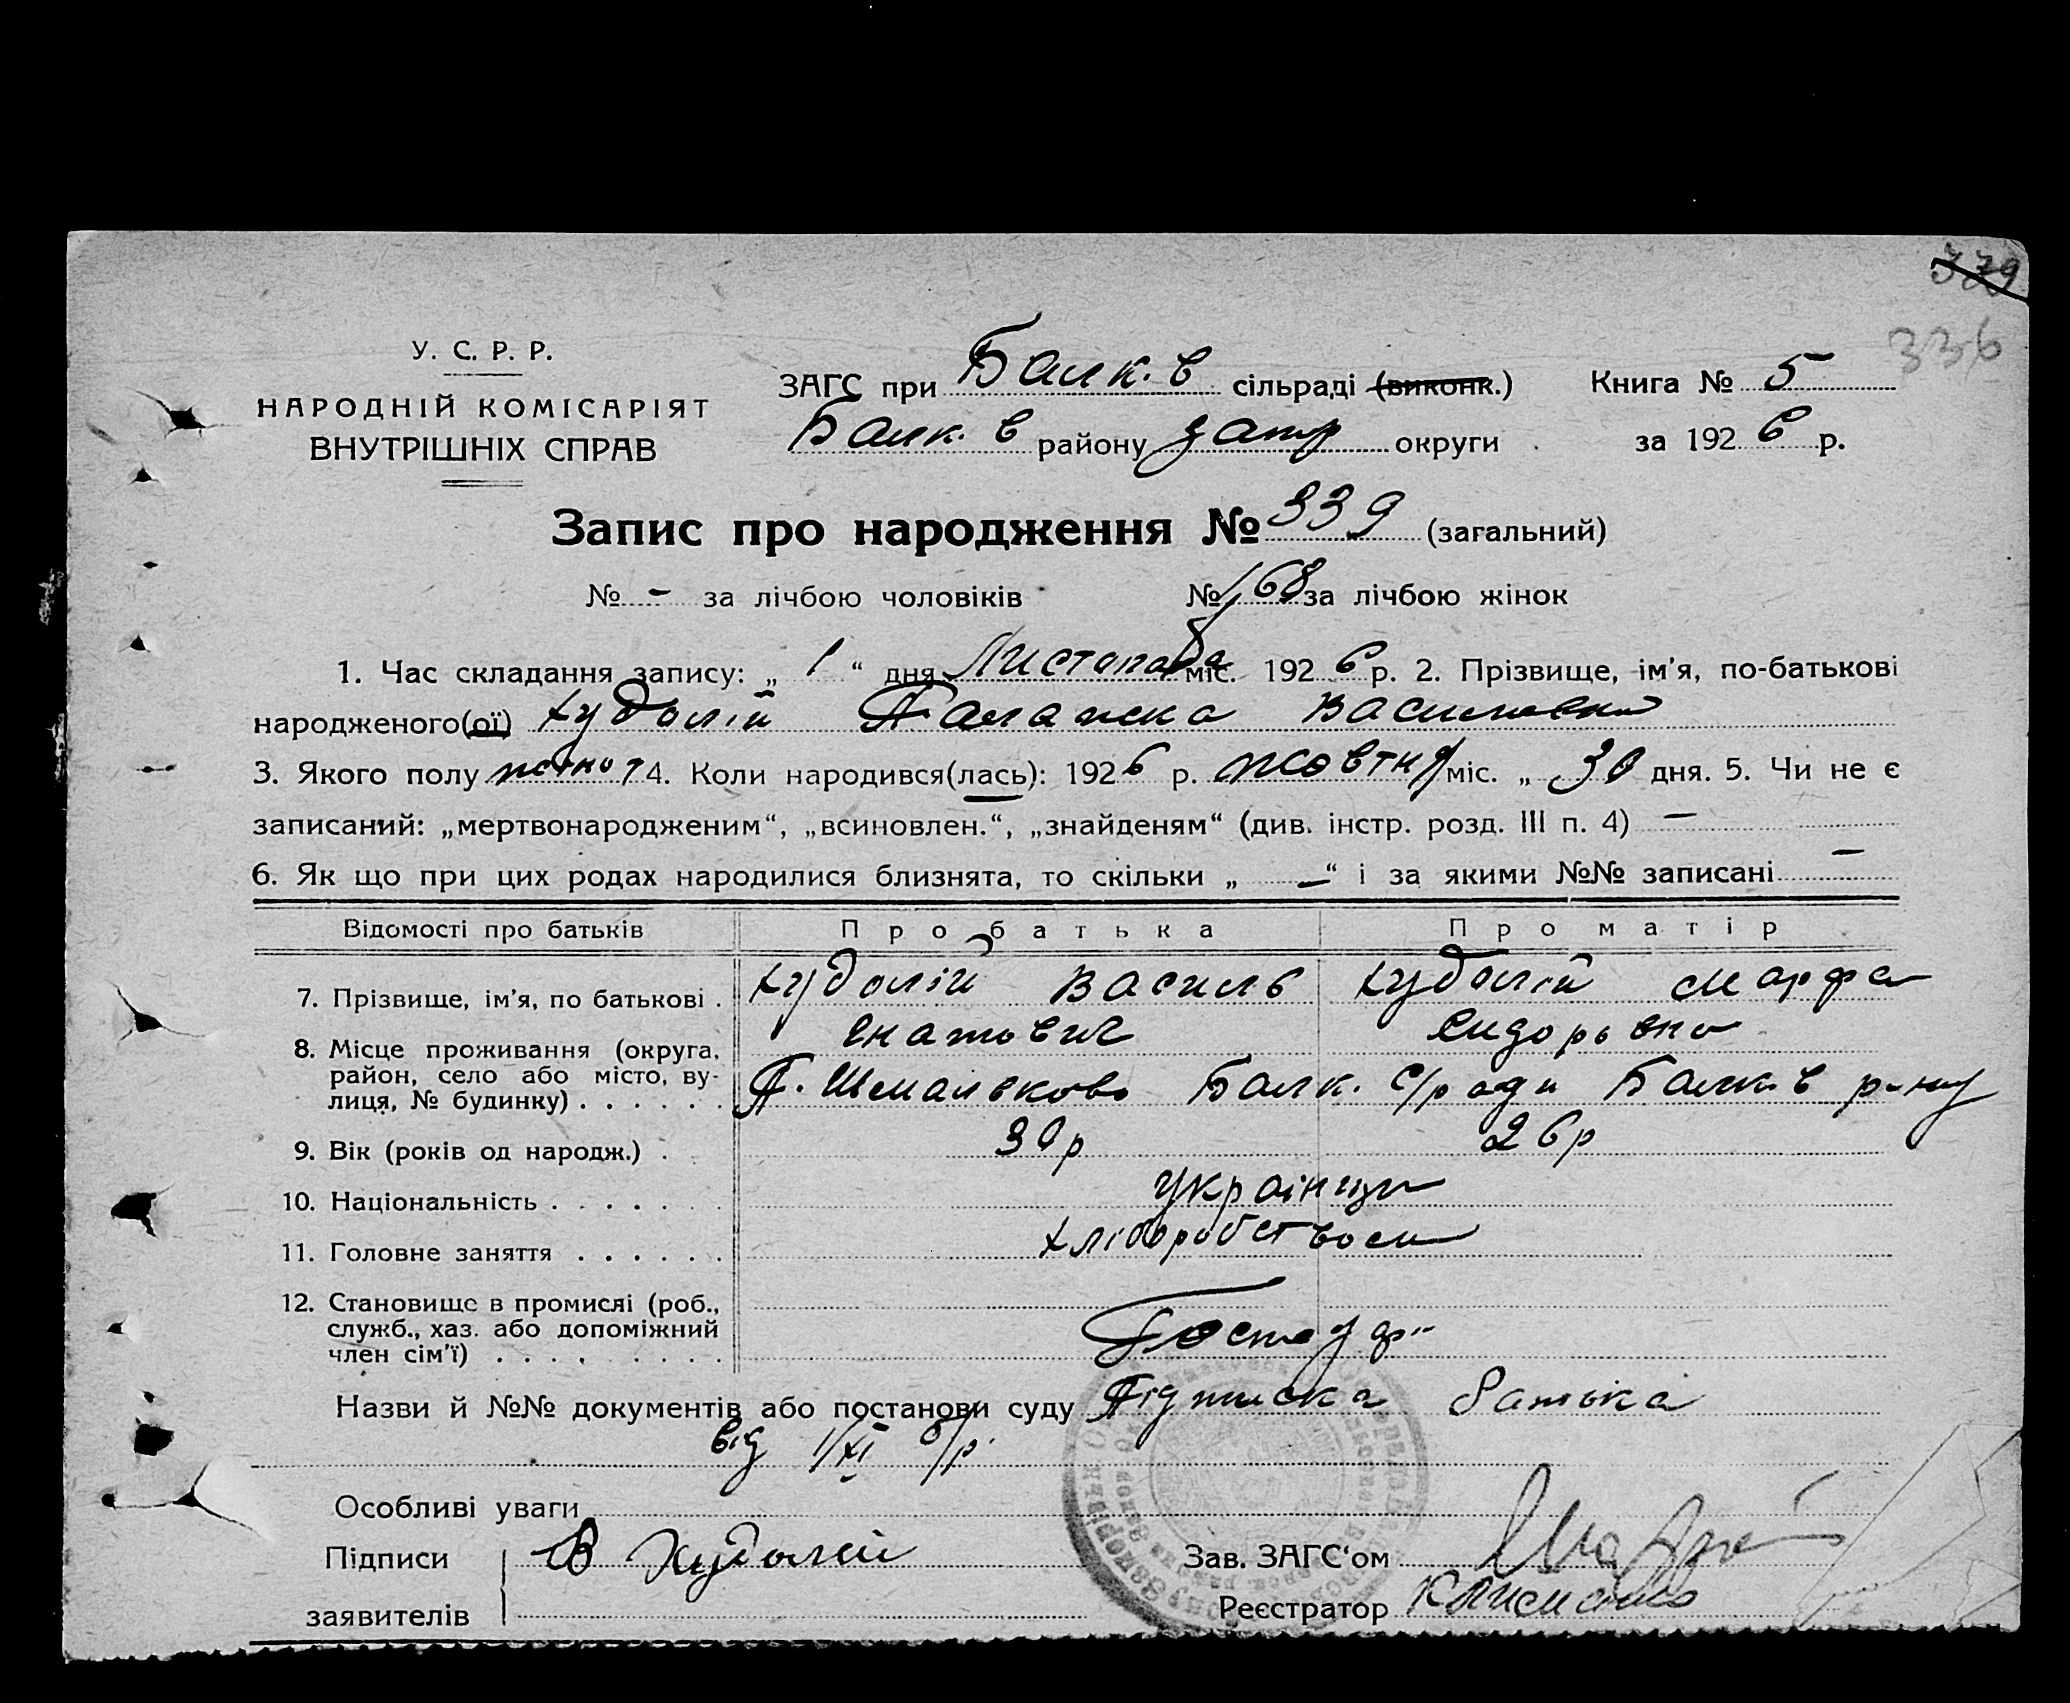 379
336
У. С. Р. Р.
НАРОДНІЙ КОМІСАРІЯТ
ВНУТРІШНІХ СПРАВ
ЗАГС при Балк. в сільраді (виконк.) Книга № 5
Балк. в району Запр округи за 1926 р.
Запис про народження № 339 (загальний)
№ - за лічбою чоловіків № 168 за лічбою жінок
1. Час складання запису: „ 1 “ дня Листопада міс. 1926 р. 2. Прізвище, ім'я, по-батькові
народженого(ої) Худолій Палажка Василевна
3. Якого полу жіноч 4. Коли народився(лась): 1926 р. жовтня міс. „ 30 дня. 5. Чи не є
записаний: „мертвонародженим“, „всиновлен.“, „знайденям“ (див. інстр. розд. III п. 4) —
6. Як що при цих родах народилися близнята, то скільки „ — “ і за якими №№ записані —
Відомості про батьків Про батька Про матір
7. Прізвище, ім'я, по батькові . Худолій Василь Худолій Марфа
Гнатович Сидоровна
8. Місце проживання (округа,
район, село або місто, ву-
лиця, № будинку) . . . . . . П. Шмальково Балк. с/ради Балк. в р-ну
9. Вік (років од народж.) . 30 р 26 р
10. Національність . . . . . . . українци
11. Головне заняття . . . . . . хліборобством
12. Становище в промислі (роб.,
служб., хаз. або допоміжний
член сім'ї) . . . . . . . . .
Назви й №№ документів або постанови суду Підписка батька
від 1/XI б/р.
Особливі уваги
Підписи В Худолій Зав. ЗАГС'ом
заявителів Реєстратор